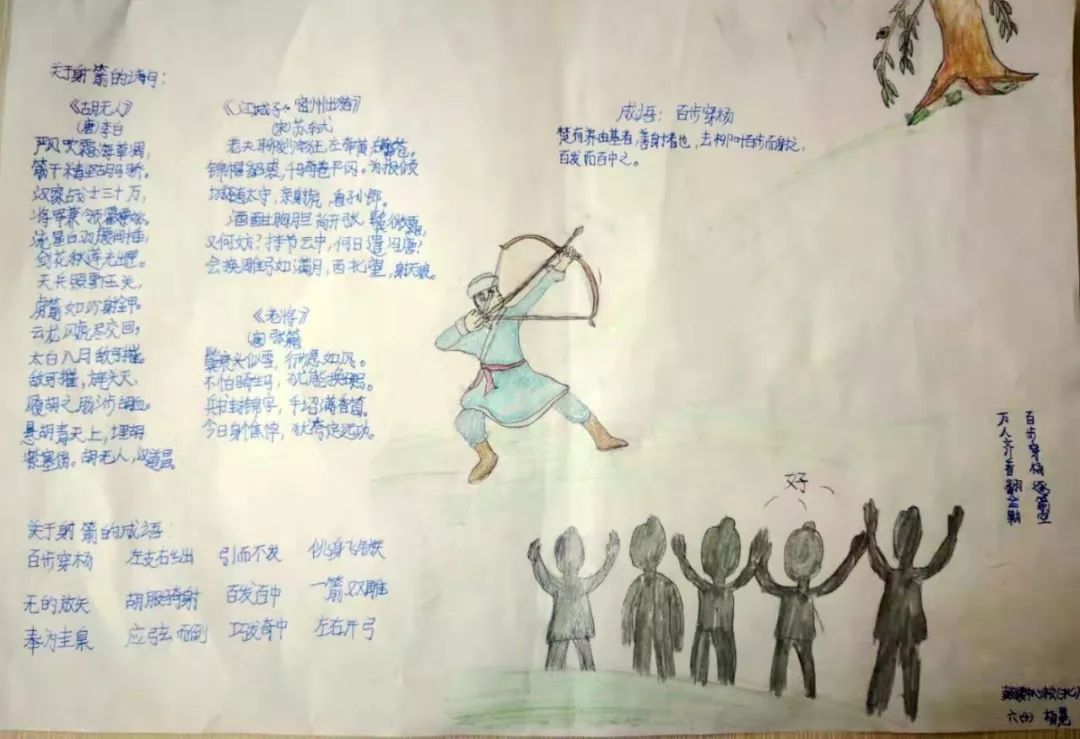 关于射箭的诗句：
《胡无人》
(唐)李白
严风吹霜海草凋，
筋干精坚胡马骄。
汉家战士三十万，
将军兼领霍嫖姚。
流星白羽腰间插，
剑花秋莲光出匣。
天兵照雪下玉关，
虏箭如沙射金甲。
云龙风虎尽交回，
太白入月敌可摧。
敌可摧，旄头灭，
履胡之肠涉胡血。
悬胡青天上，埋胡
紫塞傍。胡无人，汉道昌。
《江城子·密州出猎》
(宋)苏轼
老夫聊发少年狂，左牵黄，右擎苍。
锦帽貂裘，千骑卷平冈。为报倾
城随太守，亲射虎，看孙郎。
酒酣胸胆尚开张，鬓微霜，
又何妨？持节云中，何日遣冯唐？
会挽雕弓如满月，西北望，射天狼。
《老将》
(唐)张籍
鬓衰头似雪，行步急如风。
不怕骑生马，犹能挽硬弓。
兵书封锦字，手诏满香筒。
今日身憔悴，犹夸定远功。
成语：百步穿杨
楚有养由基者，善射者也，去柳叶百步而射之，
百发而百中之。
好
百步穿杨
万人齐
关于射箭的成语：
百步穿杨 左支右绌 引而不发
无的放矢 胡服骑射 百发百中 一箭双雕
奉为圭臬 应弦而倒 巧发奇中 左右开弓